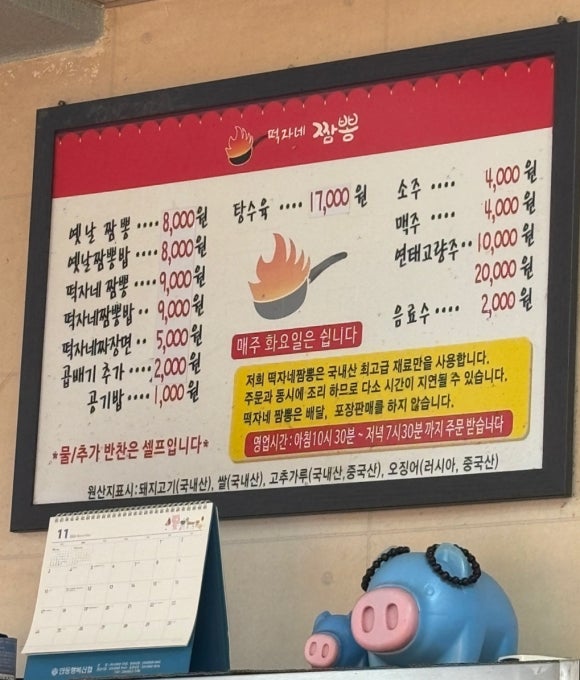 떡자네 짬뽕
옛날 짬뽕 ···· 8,000원
옛날짬뽕밥 ···· 8,000원
떡자네 짬뽕 ···· 9,000원
떡자네짬뽕밥 ·· 9,000원
떡자네짜장면 ·· 5,000원
곱배기 추가 ···· 2,000원
공기밥 ···· 1,000원
*물/추가 반찬은 셀프입니다*
탕수육 ···· 17,000원
매주 화요일은 쉽니다
소주 ···· 4,000원
맥주 ···· 4,000원
연태고량주·· 10,000원
20,000원
음료수 ···· 2,000원
저희 떡자네짬뽕은 국내산 최고급 재료만을 사용합니다.
주문과 동시에 조리 하므로 다소 시간이 지연될 수 있습니다.
떡자네 짬뽕은 배달, 포장판매를 하지 않습니다.
영업시간 : 아침10시 30분 ~ 저녁 7시30분까지 주문 받습니다
원산지표시:돼지고기(국내산), 쌀(국내산), 고추가루(국내산,중국산), 오징어(러시아, 중국산)
11
안동행복신협